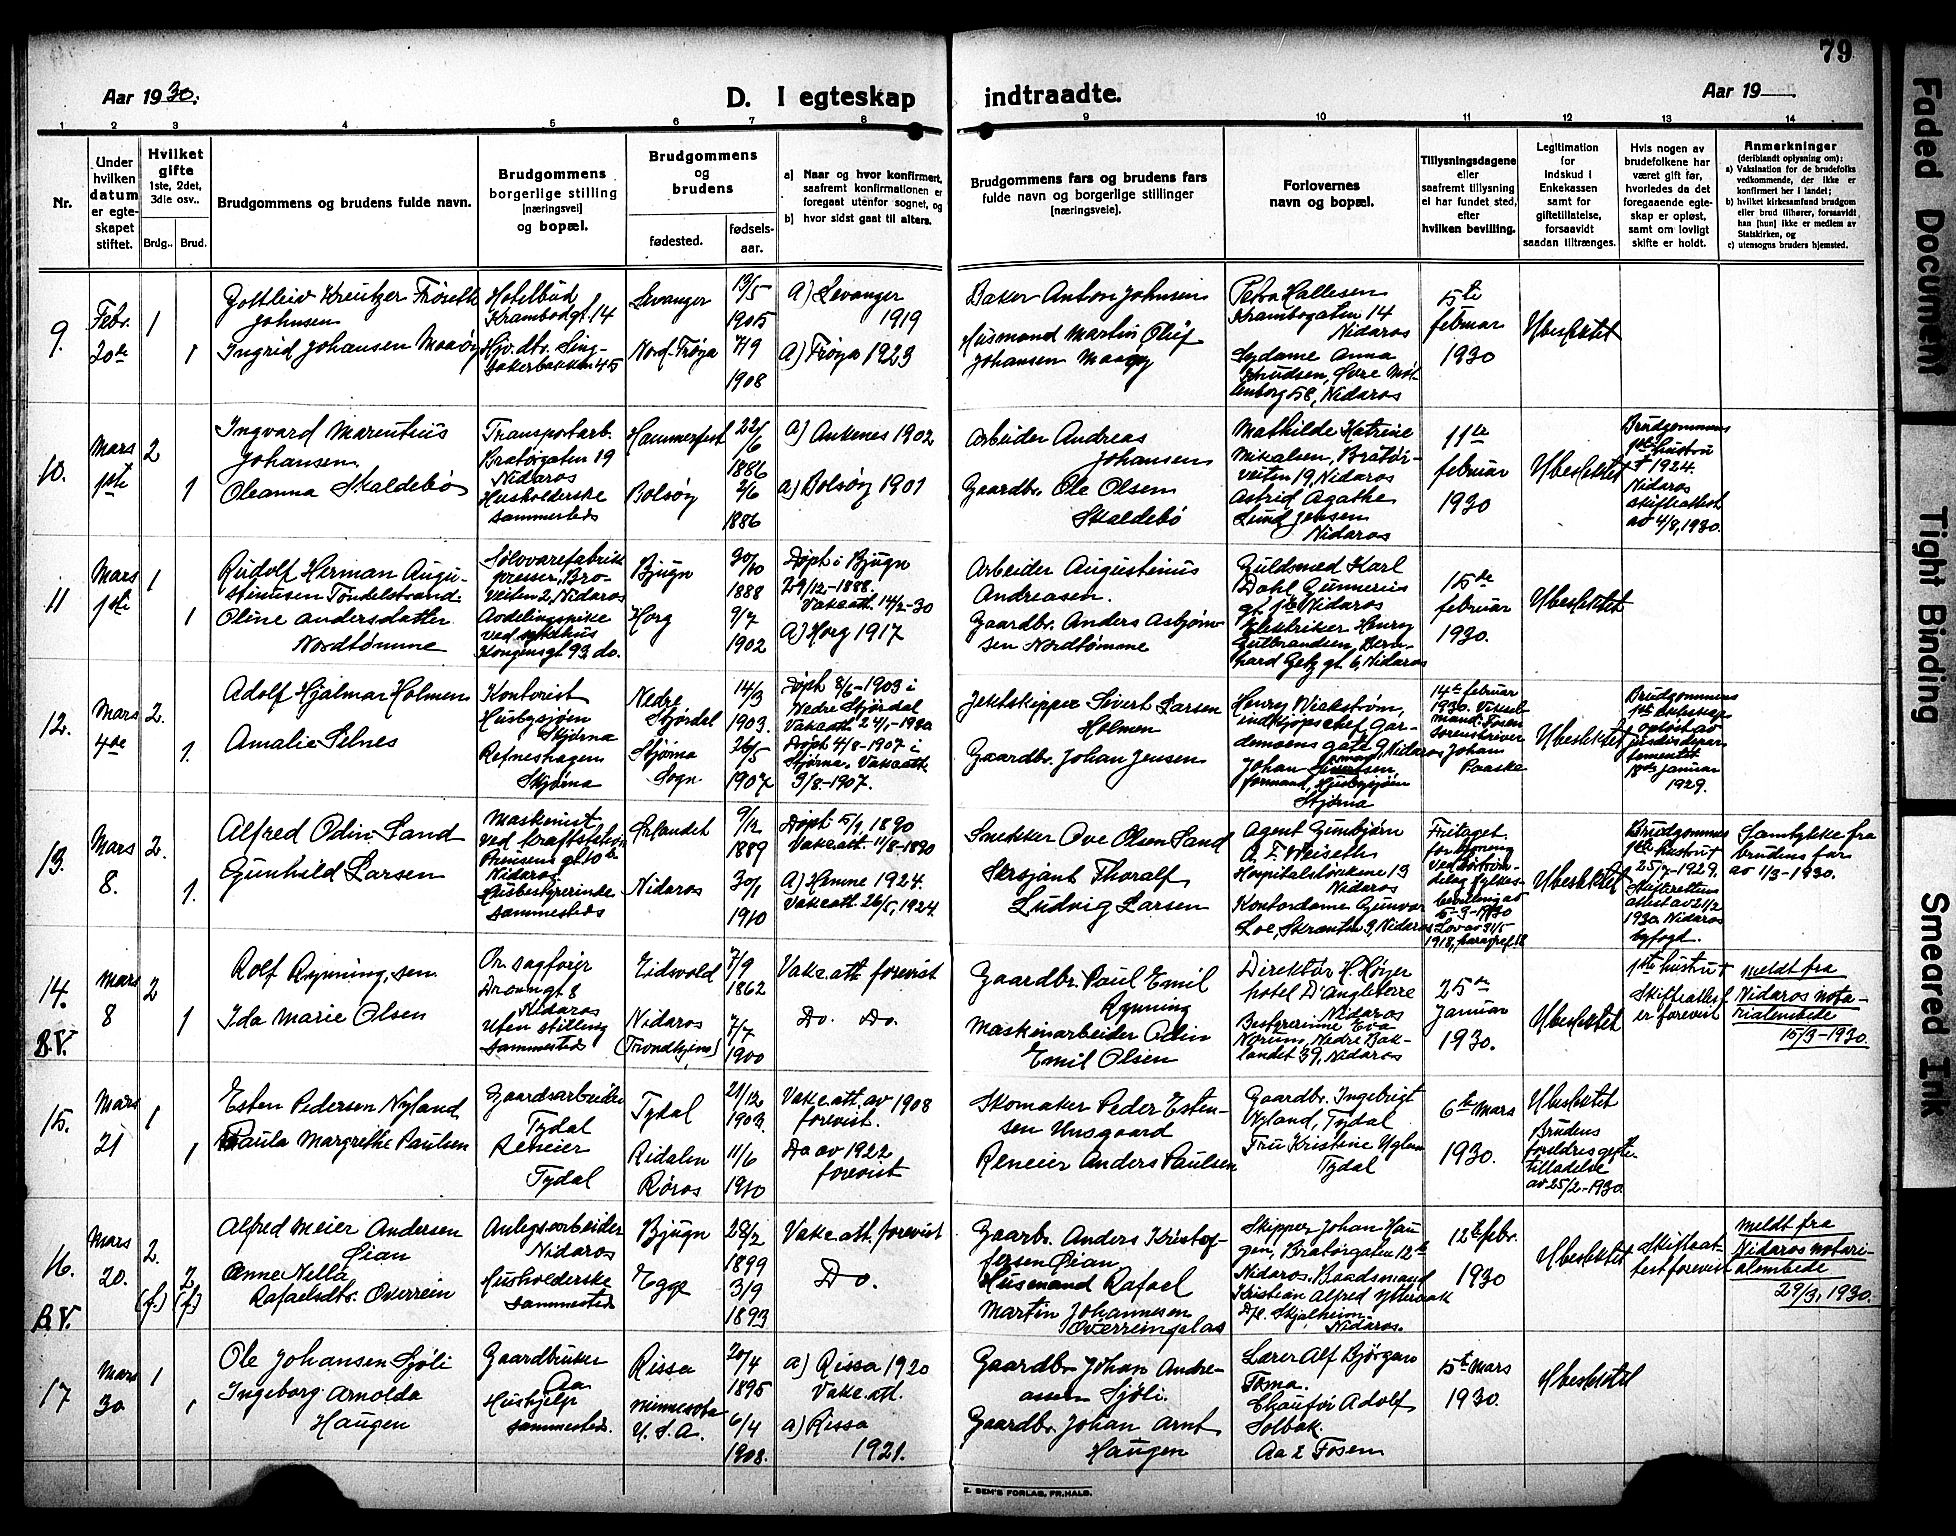 79
Aar 1930.
D. I egteskap indtraadte.
Aar 19
1 2 3 4 5 6 7 8 9 10 11 12 13 14
Nr.
Under hvilken datum er egteskapet stiftet.
Hvilket gifte
1ste, 2det, 3die osv..
Brdg.. Brud.
Brudgommens og brudens fulde navn.
Brudgommens borgerlige stilling [næringsvei] og bopæl.
Brudgommens og brudens
fødested.
fødsels-aar.
a) Naar og hvor konfirmert, saafremt konfirmationen er foregaat utenfor sognet, og
b) hvor sidst gaat til alters.
Brudgommens fars og brudens fars fulde navn og borgerlige stillinger [næringsveie].
Forlovernes navn og bopæl.
Tillysningsdagene eller saafremt tillysning ei har fundet sted, efter hvilken bevilling.
Legitimation for Indskud i Enkekassen samt for giftetillatelse, forsaavidt saadan tiltrænges.
Hvis nogen av brudefolkene har været gift før, hvorledes da det foregaaende egteskap er opløst, samt om lovligt skifte er holdt.
Anmerkninger
(deriblandt oplysning om):
a) Vaksination for de brudefolks vedkommende, der ikke er konfirmert her i landet;
b) hvilket kirkesamfund brudgom eller brud tilhører, forsaavidt han [hun] ikke er medlem av Statskirken, og
c) utensogns bruders hjemsted.
9.
Febr. 20de
1
1
Johnsen
Ingrid Johansen Maaøy
Hotelbud
Krambodgt. 14
Levanger
19/5
1905
Nord-Frøya
7/9
1908
a) Levanger
1919
a) Frøya 1923
Baker Anton Johnsen
Husmand Martin Oluf
Johansen Maaøy
Petra Hallesen
Krambogaten 14
Nidaros
Sydame Anna
Knudsen, Øvre Møl-
lenborg 58, Nidaros
15te
februar
1930
Ubeslektet
10.
Mars
1ste
2
1
Ingvard Marentius
Johansen.
Oleanna Skaldebø
Transportarb.
Bratørgaten 19
Nidaros
Husholderske
sammesteds
Hammerfest
22/6
1886
Bolsøy
2/6
1886
a) Ankenes 1902
a) Bolsøy 1901
Arbeider Andreas
Johansen
Gaardbr. Ole Olsen
Skaldebø
Mathilde Katrine
Mikalsen, Bratør-
veiten 19, Nidaros
Astrid Agathe
Lund Jensen
Nidaros
11te
februar
1930
Ubeslektet
Brudgommens
1ste hustru
† 1924.
Nidaros
skifteattest
av 4/2, 1930.
11
Mars
1ste
1
1
Rudolf Herman Augu-
stinusen Tøndelstrand
Oline Andersdatter
Nordtømme
Sølvvarefabrik
presser, Bro-
veiten 2, Nidaros
Avdelingspike
ved sykehus
Kongensgt. 93, do.
Bjugn
30/10
1888
Horg
9/7
1902
Døpt i Bjugn
29/12-1888.
Vakc.att. 14/2-30
a) Horg 1917
Arbeider Augustinus
Andreasen.
Gaardbr. Anders Asbjørn-
sen Nordtømme
Guldsmed Karl
Dahl, Gunnerus
Nidaros
Elektriker Henry
Gulbrandsen, Bern-
hard Getz gt. 6, Nidaros
15de
februar
1930.
Ubeslektet
12.
Mars
4de
2.
1.
Adolf Hjalmar Holmen
Amalie Selnes
Kontorist
Husbysjøen
Stjørna
Refneshagen
Stjørna
Nedre
Stjørdal
14/3
1903.
Stjørna
Sogn
26/5
1907
Døpt 8/6-1903 i
Nedre Stjørdal
Døpt 4/8-1907 i
Stjørna. Vakc.att.
9/8-1907.
Jektskipper Sivert Larsen
Holmen
Gaardbr. Johan Jensen
Henry Wickstrøm,
indkjøpschef, Gar-
demoens gate 9, Nidaros
Johan
formand, Husbysjøen
Stjørna
14de februar
1930. Viksel-
mand: Fosen
sorenskriver
Johan
Paaske
Ubeslektet
Brudgommens
1ste ekteskap
opløst av
justisdepar-
tementet
januar
1929.
13.
Mars
8.
2.
1.
Alfred Odin Sand
Gunhild Larsen
Maskinist
ved kraftstation
Nidaros
Husbestyrerinde
sammesteds
Ørlandet
9/12
1889
Nidaros
30/1
1910
Døpt 5/1 1890
Vakc.att. 11/8-1890
a) Hemne 1924.
Vakc.att. 26/5, 1924.
Snekker Ove Olsen Sand
Sersjant Thoralf
Ludvig Larsen
Agent Gunbjørn
Nidaros
Kontordame Gunvor
Loe, Nidaros
Fritaget
for lysning
ved Sørtrøn-
delag fylkes-
bevilling av
5-3-1930
Lov av 31/5
1918, paragraf 12
Ubeslektet
Brudgommens
1ste hustru †
25/7-1929.
Skifteretten
attest av 21/2
1930, Nidaros
byfogd.
Samtykke fra
brudens far
av 1/3-1930.
14.
B.V.
Mars
8
2
1
Rolf Rynning, sen.
Ida Marie Olsen
Or. sagfører
Dronn.gt. 8
Nidaros
Uten stilling
sammesteds
Eidsvold
7/9
1862
Nidaros
(Trondhjem)
7/7
1900
Vakc.att. forevist
Do. Do.
Gaardbr. Paul Emil
Rynning
Maskinarbeider Odin
Emil Olsen
Direktør H. Høyer
hotel D'Angleterre
Nidaros
Bestyrerinne Eva
Norum, Nedre Bak-
landet 39, Nidaros
25de
Januar
1930.
Ubeslektet
1ste hustru †
Skifteattest
er forevist
Meldt fra
Nidaros nota-
rialembede
15/3-1930.
15.
Mars
21
1
1
Esten Pedersen Nyland
Paula Margrethe Paulsen
Gaardsarbeider
Tydal
Reneier
Tydal
Tydal
21/12
1903.
Ridalen
Røros
11/6
1910
Vakc.att. av 1908
forevist.
Do av 1922
forevist
Skomaker Peder Esten-
sen Unsgaard
Reneier Anders Paulsen
Gaardbr. Ingebrigt
Nyland, Tydal
Fru Kristine Nyland
Tydal
6te Mars
1930.
Ubeslektet
Brudens
foreldres gifte-
tilladelse
av 25/2-1930.
16.
B.V.
Mars
20.
2.
(f.)
2
(f.)
Alfred Meier Andersen
Øian
Anne Nella
Rafaelsdtr. Overrein
Anlegsarbeider
Nidaros
Husholderske
sammesteds
Bjugn
28/2
1899
Egge
3/9
1893
Vakc.att. forevist
Do.
Gaarbr. Anders Kristof-
fersen Øian
Husmand Rafael
Martin Johannesen
Overreinsplas
Skipper Johan Hau-
gen, Bratørgaten 12b
Nidaros. Baadsmand
Kristian Alfred Ytterbak
D/s. Skjalheim
Nidaros.
12te febr.
1930
Ubeslektet
Skifteat-
test forevist
Meldt fra
Nidaros notari-
alembede
29/3, 1930.
17
Mars
30
1
1
Ole Johansen Sjøli
Ingeborg Arnolda
Haugen
Gaardbruker
Aa
Hushjelp
sammesteds.
Rissa
20/4
1895
Minnesota
U.S.A.
6/4
1908.
a) Rissa 1920
Vakc.att.
a) Rissa
1921.
Gaardbr. Johan Andre-
assen Sjøli.
Gaardbr. Johan Arnt
Haugen
Lærer Alf Bjørgan
Chaufør Adolf
Solbak.
Aa i Fosen
15te Mars
1930.
Ubeslektet
E. SEM'S FORLAG, FR.HALD.
Faded Document
Tight Binding
Smeared Ink